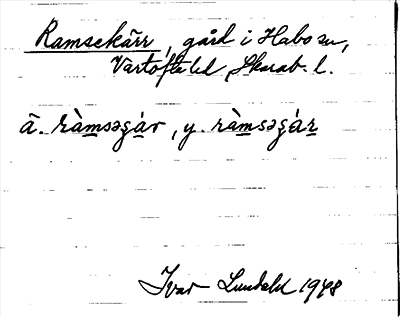 Ramsekärr, gård i Habo sn,
Vartofta hd, Skarab. l.
ä. ràmsəgár, y. ràmsəgár
Ivar Lundahl 1948